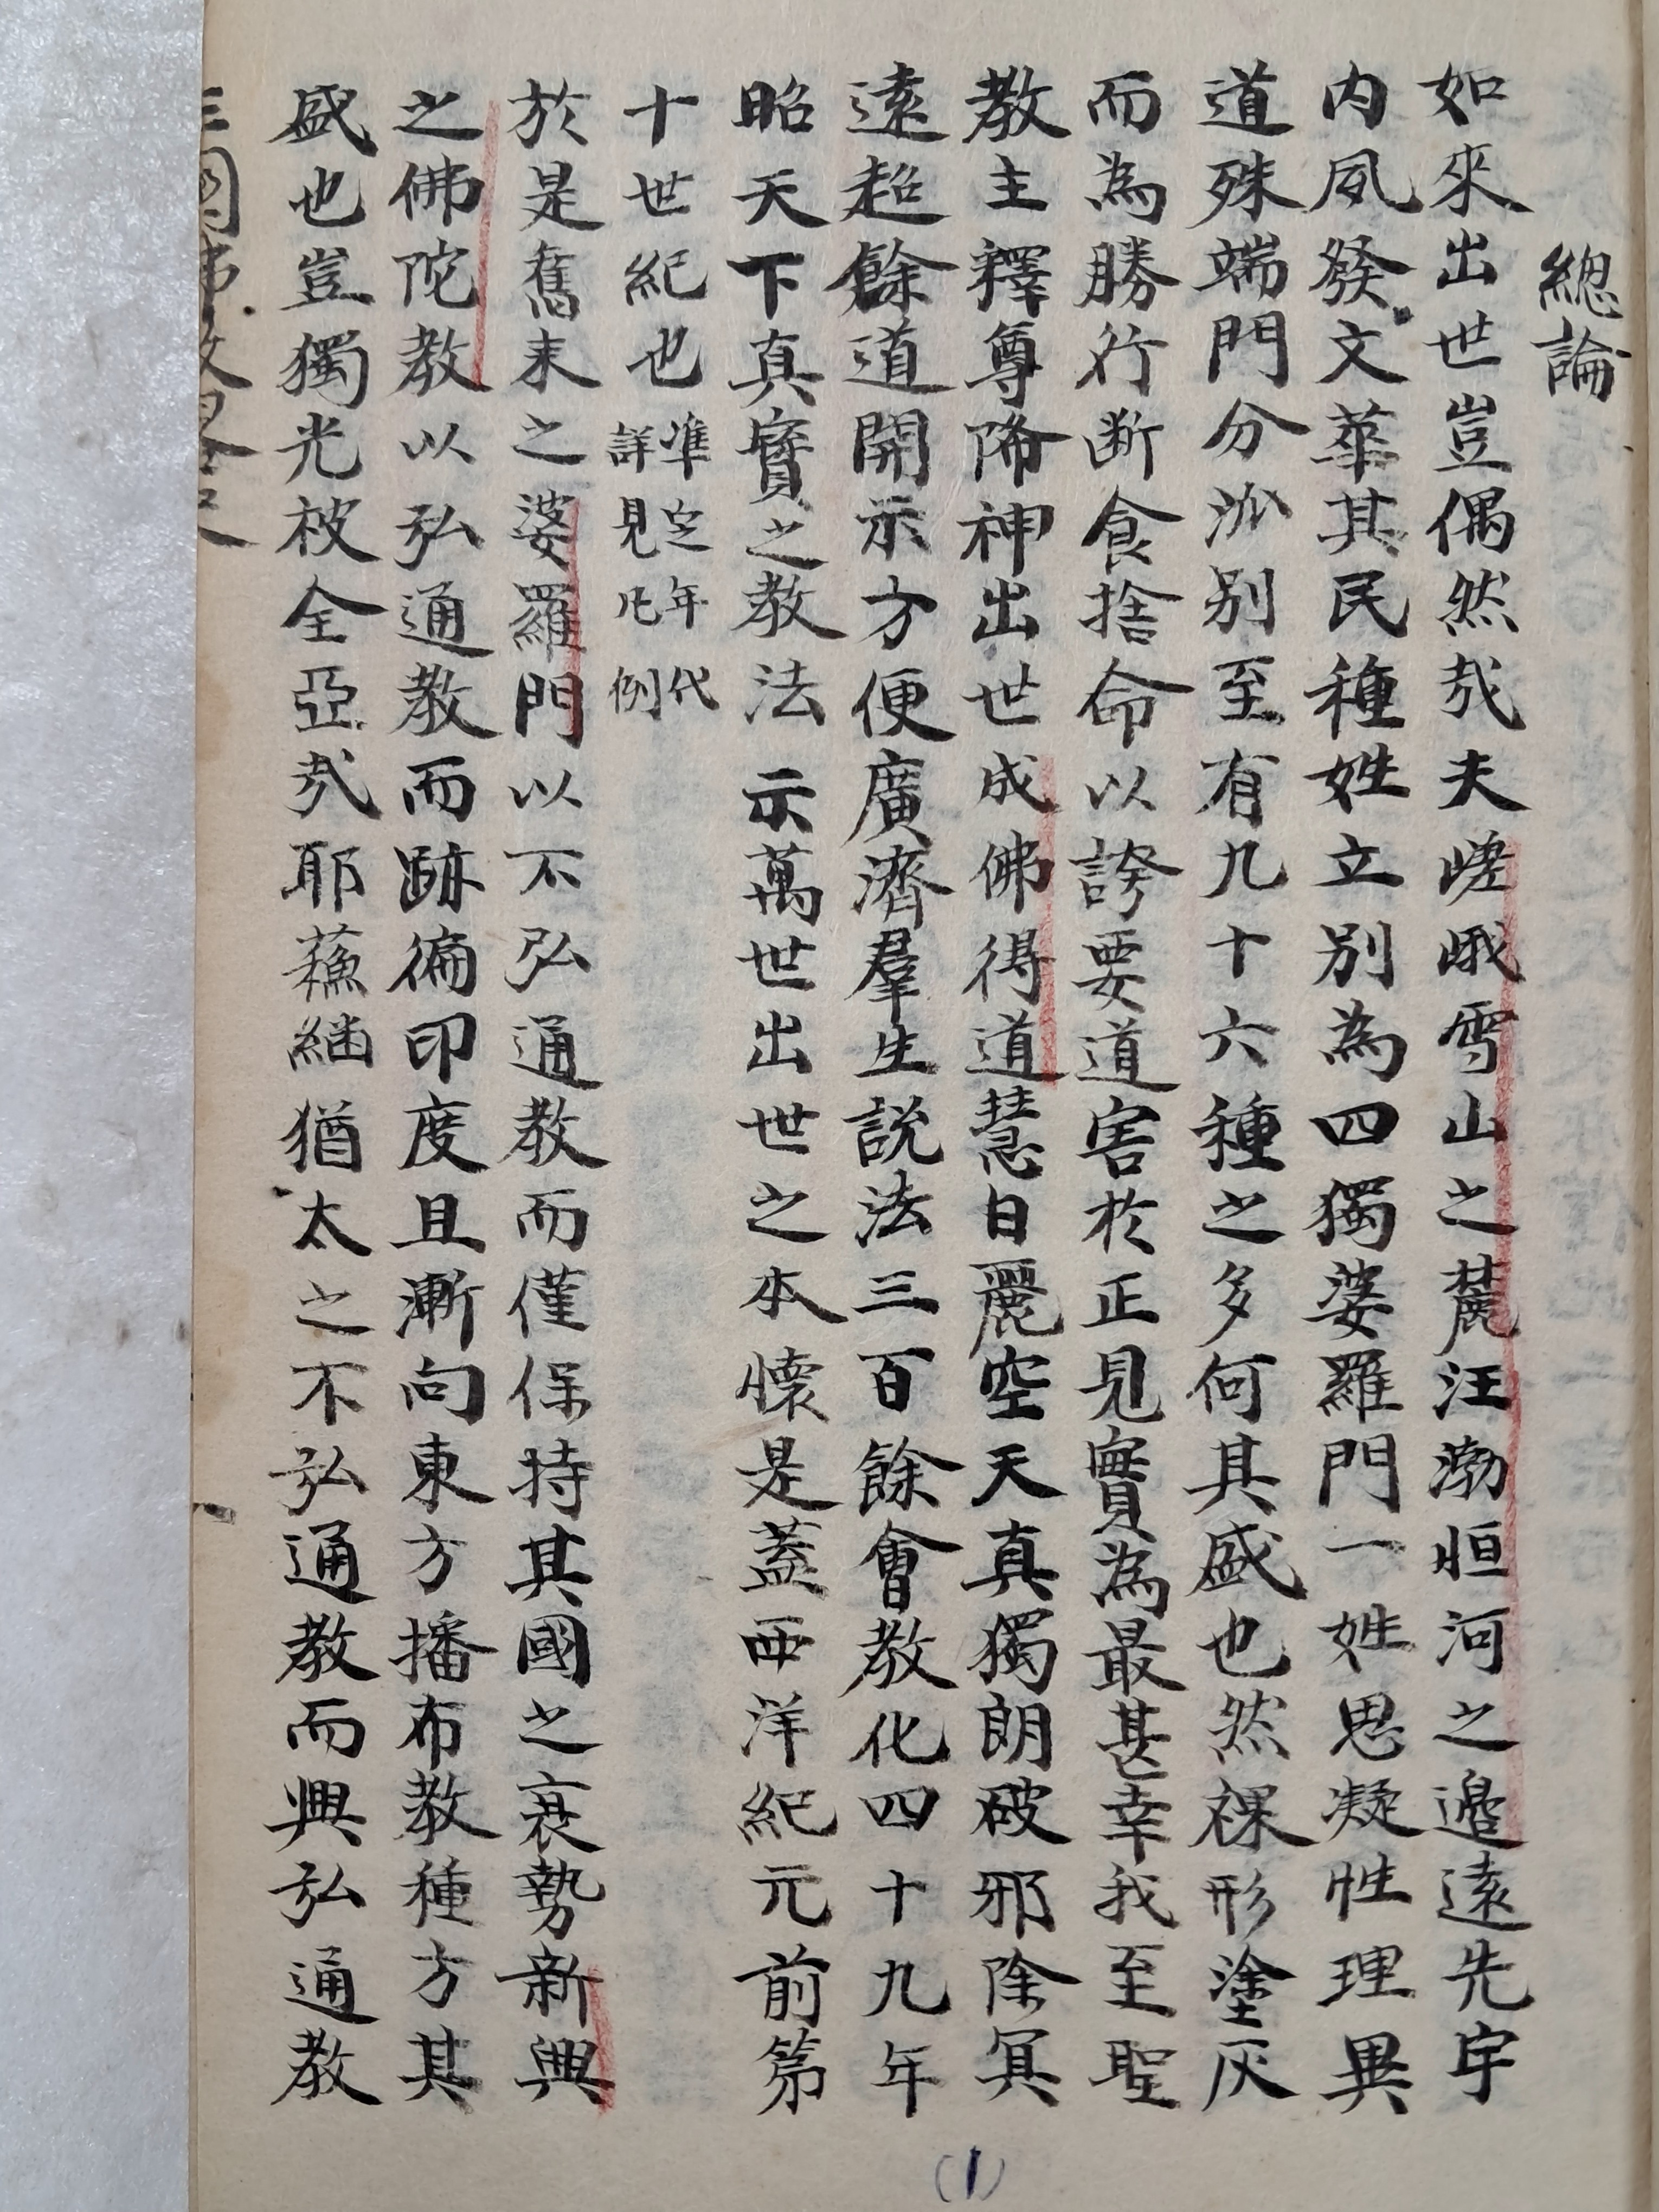 總論
如來出世豈偶然哉夫嵯峨雪山之麓汪渤恒河之邉遠先宇
内夙發文華其民種姓立別為四獨婆羅門一姓思凝性理異
道殊端門分派别至有九十六種之多何其盛也然裸形塗灰
而為勝行断食捨命以誇要道害於正見實為最甚幸我至聖
教主釋尊降神出世成佛得道慧日麗空天真獨朗破邪除冥
遠超餘道開示方便廣濟羣生說法三百餘會教化四十九年
昭天下真實之教法示萬世出世之本懷是蓋西洋紀元前第
十世紀也準定年代
詳見凡例
於是舊来之婆羅門以不弘通教而僅保持其國之衰勢新興
之佛陀教以弘通教而跡徧印度且漸向東方播布教種方其
盛也豈獨光被全亞哉耶蘇繼猶太之不弘通教而興弘通教
三國佛教畧史
(1)